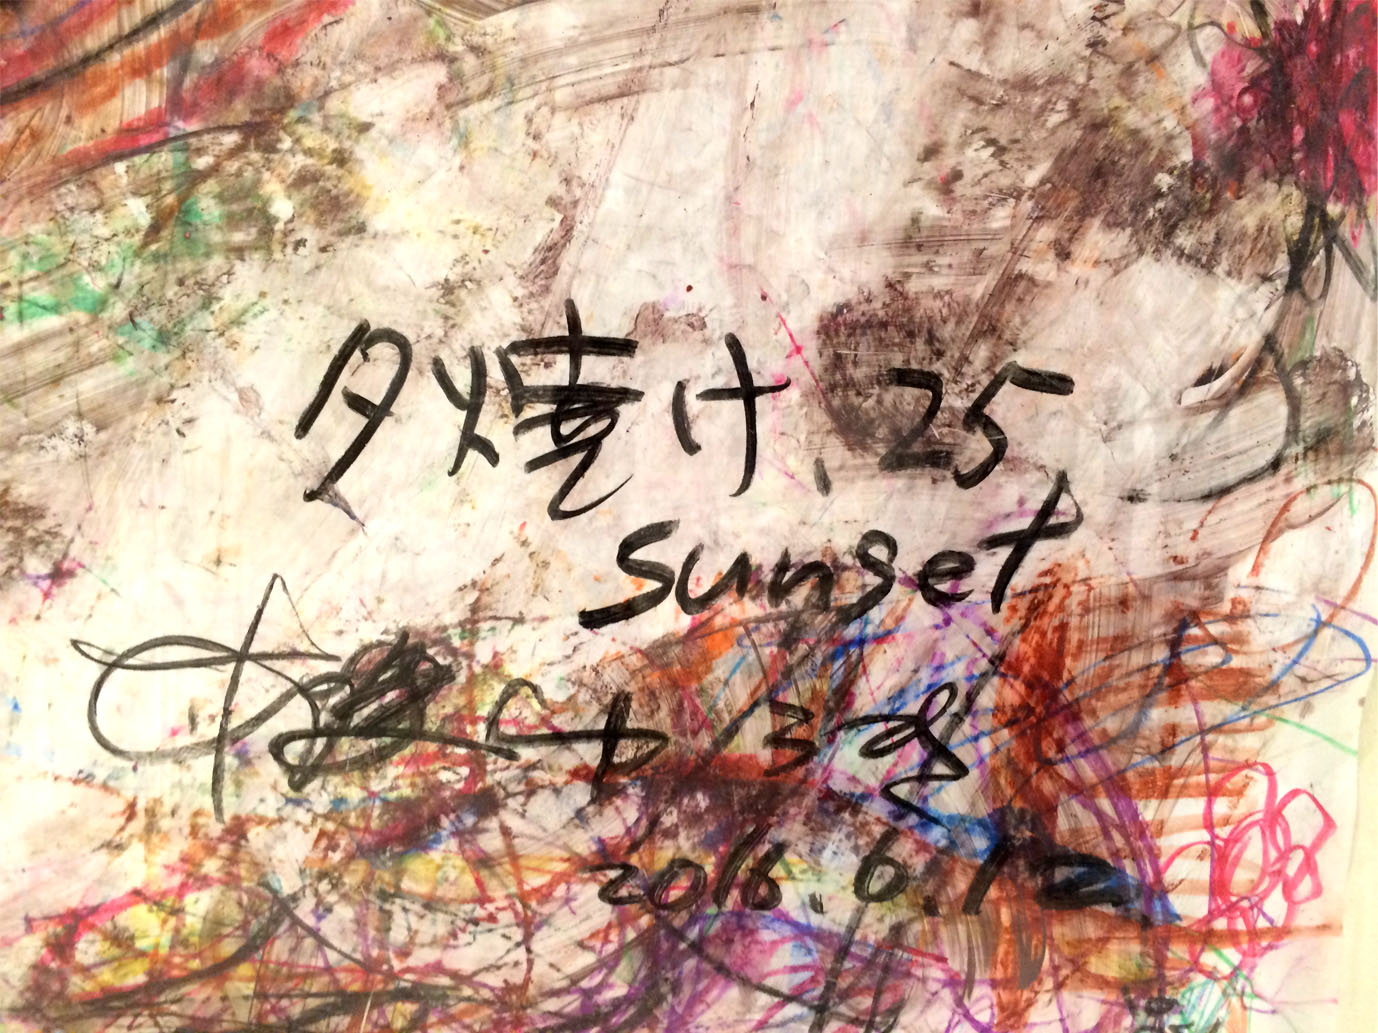 夕焼け、25
sunset
2016.6.12